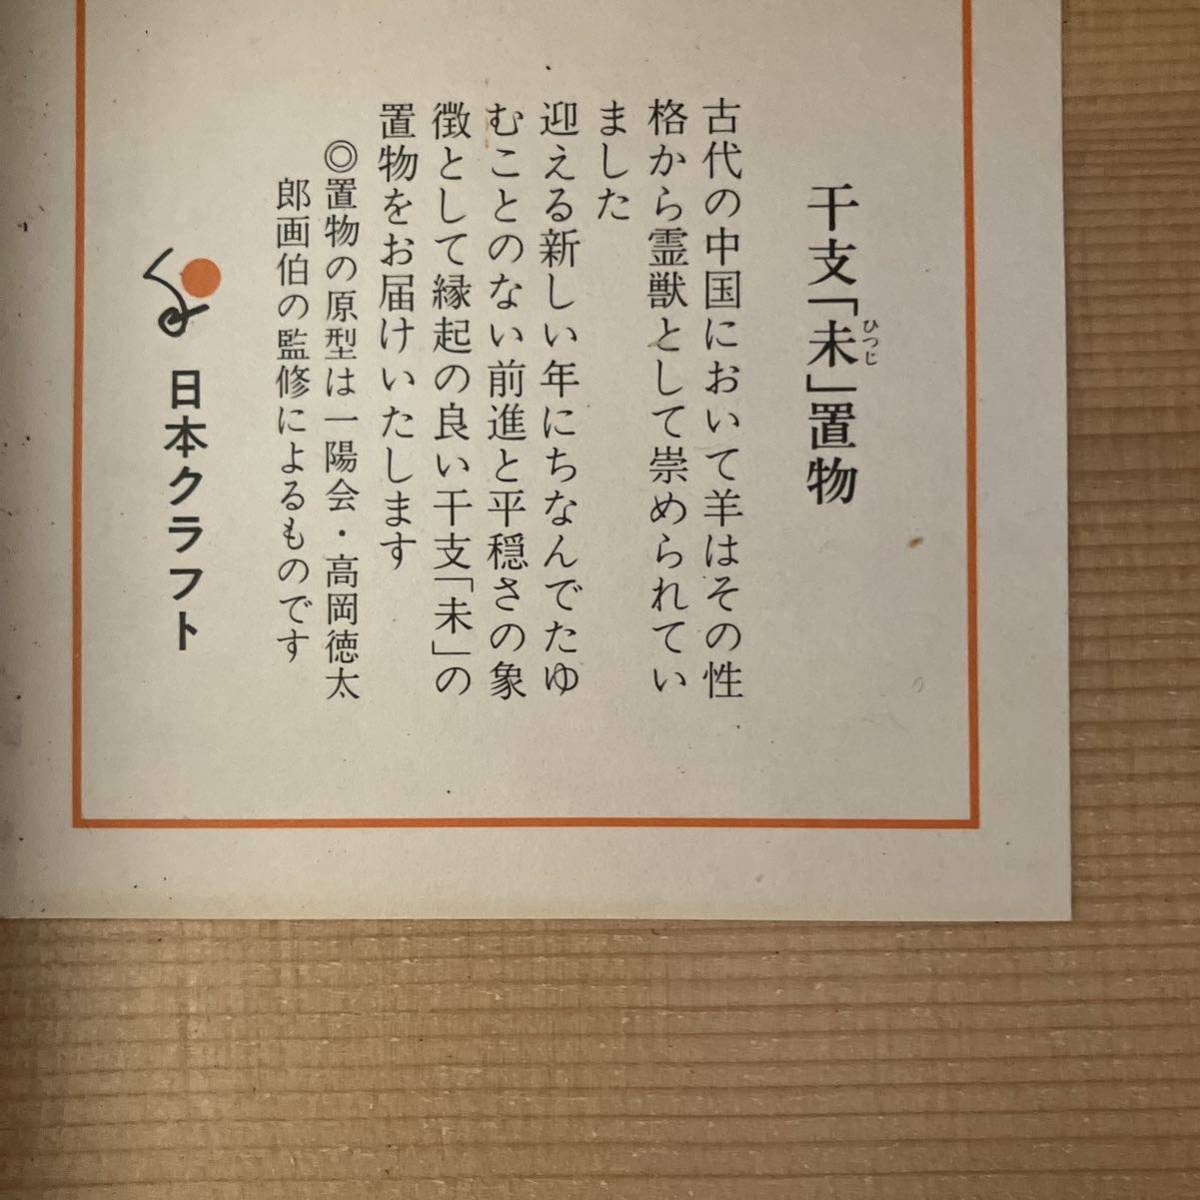 干支「未」置物
ひつじ
古代の中国において羊はその性
格から霊獣として崇められてい
ました
迎える新しい年にちなんでたゆ
むことのない前進と平穏さの象
徴として縁起の良い干支「未」の
置物をお届けいたします
◎置物の原型は一陽会・高岡徳太
郎画伯の監修によるものです
日本クラフト